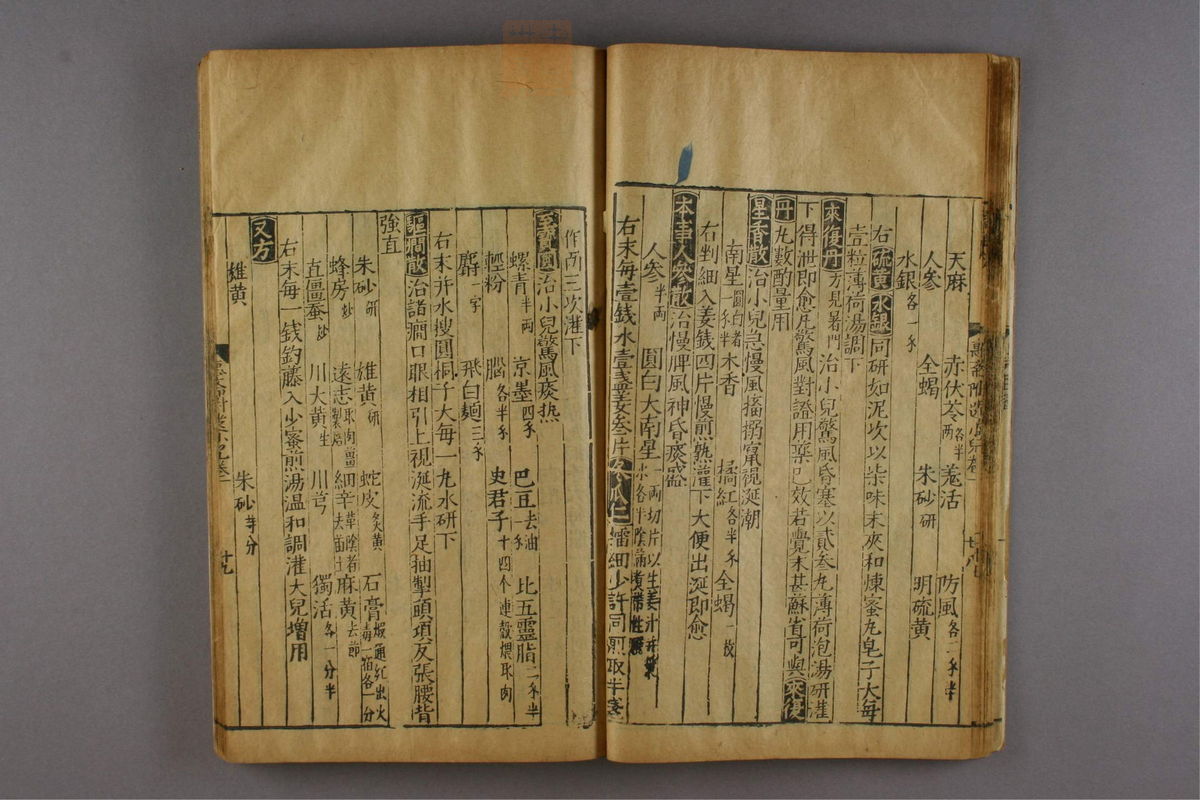 天麻 赤伏苓各半兩 羗活 防風各二錢半
人參 全蝎 朱砂研 明硫黄
水銀各一錢
右硫黄水銀同研如泥次以柒味末夾和煉蜜丸皂子大每
壹粒薄荷湯調下
來復丹方見暑門 治小兒驚風昏塞以貳叁丸薄荷泡湯研灌
下得泄即愈凡驚風對證用藥已效若覺未甚蘇省可與來復
丹丸數酌量用
星香散治小兒急慢風搐搦竄視涎潮
南星圓白者一錢半 木香 橘紅各半錢 全蝎一枚
右剉細入姜錢四片慢煎熟灌下大便出涎即愈
本事人參散治慢脾風神昏痰盛
人參半兩 圓白大南星一兩切片以生姜汁并
右末每壹錢水壹盞姜叁片冬瓜仁擂細少許同煎取半盞
作兩三次灌下
至寶圓治小兒驚風痰热
螺青半兩 京墨四錢 巴豆去油一錢 比五靈脂一錢半
輕粉 腦各半錢 史君子十四个連殼煨取肉
麝一字 飛白麺三錢
右末井水搜圓桐子大每一丸水研下
驅癇散治諸癇口眼相引上視涎流手足抽掣頭項反張腰背
強直
朱砂研 雄黄研 蛇皮炙黄 石膏煅通紅出火毒一宿各一分
蜂房炒 遠志取肉薑製焙 細辛華陰者去苗土 麻黄去節
直僵蚕炒 川大黄生 川芎 獨活各一分半
右末每一錢釣藤入少蜜煎湯温和調灌大兒增用
又方
雄黄 朱砂等分
廿九